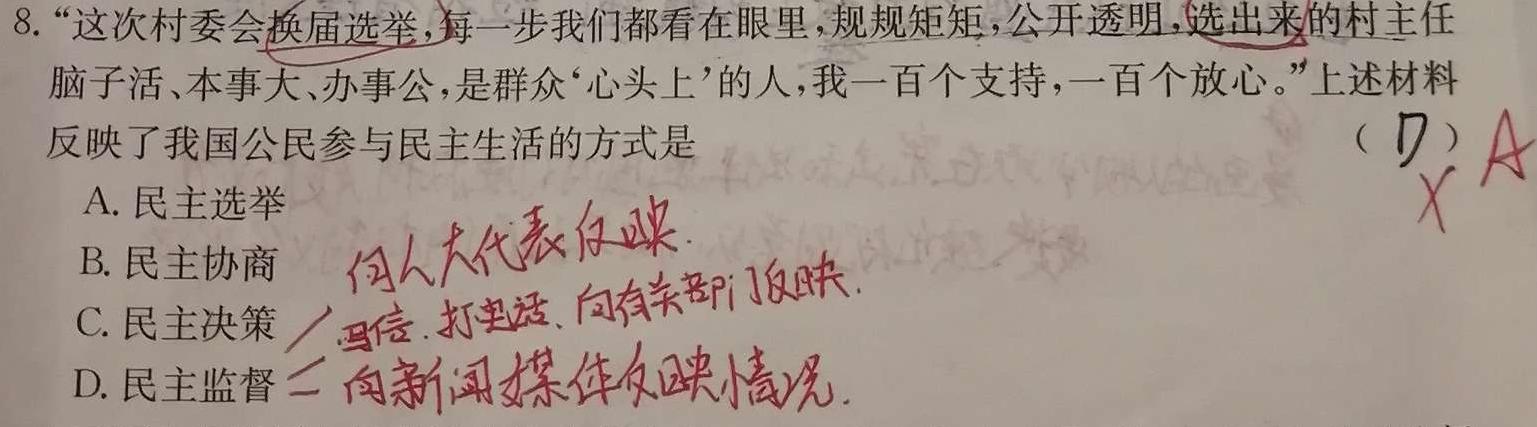 8. “这次村委会换届选举,每一步我们都看在眼里,规规矩矩,公开透明,选出来的村主任
脑子活、本事大、办事公,是群众‘心头上’的人,我一百个支持,一百个放心。”上述材料
反映了我国公民参与民主生活的方式是 (D) A
X
A. 民主选举
B. 民主协商 向人大代表反映.
C. 民主决策 写信.打电话、向有关部门反映.
D. 民主监督 向新闻媒体反映情况.